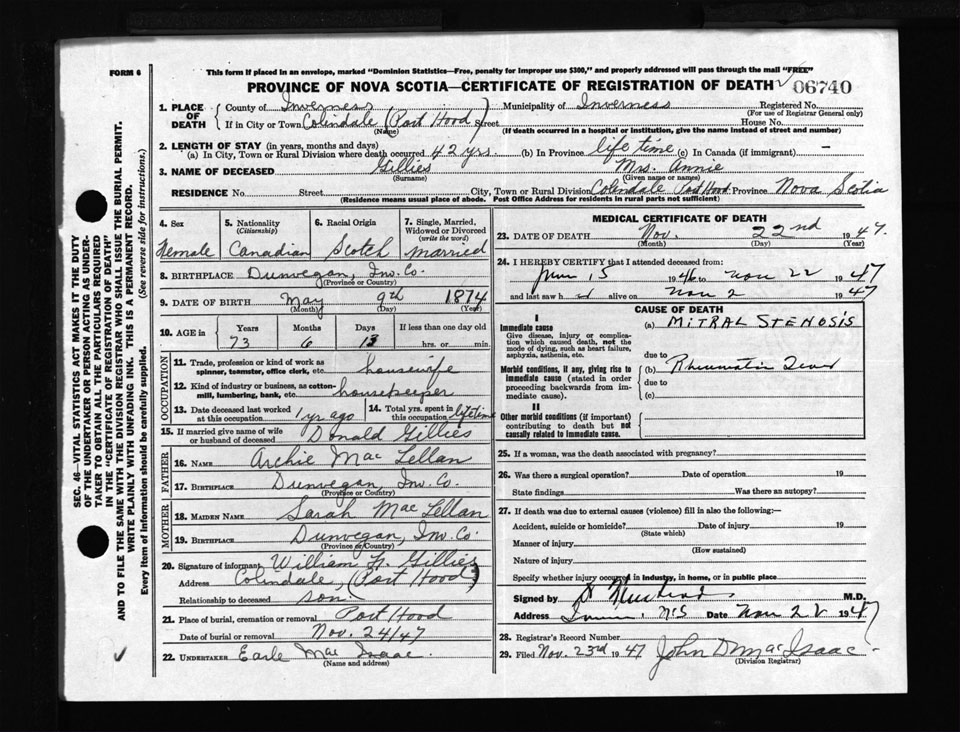 FORM 6
This form if placed in an envelope, marked "Dominion Statistics—Free, penalty for improper use $300," and properly addressed will pass through the mail "FREE"
PROVINCE OF NOVA SCOTIA—CERTIFICATE OF REGISTRATION OF DEATH 06740
1. PLACE OF DEATH { County of Inverness Municipality of Inverness Registered No.
(For use of Registrar General only)
If in City or Town Colindale (Port Hood) Street House No.
(Name) (If death occurred in a hospital or institution, give the name instead of street and number)
2. LENGTH OF STAY (in years, months and days)
(a) In City, Town or Rural Division where death occurred 42 yrs. (b) In Province life time (c) In Canada (if immigrant) —
3. NAME OF DECEASED Gillies Mrs. Annie
(Surname) (Given name or names)
RESIDENCE No. Street City, Town or Rural Division Colindale Port Hood Province Nova Scotia
(Residence means usual place of abode. Post Office Address for residents in rural parts not sufficient)
4. Sex
Female
5. Nationality
(Citizenship)
Canadian
6. Racial Origin
Scotch
7. Single, Married, Widowed or Divorced
(write the word)
Married
8. BIRTHPLACE Dunvegan, Inv. Co.
(Province or Country)
9. DATE OF BIRTH May 9th 1874
(Month) (Day) (Year)
10. AGE in { Years Months Days If less than one day old
73 6 13 hrs. or min.
OCCUPATION
11. Trade, profession or kind of work as spinner, teamster, office clerk, etc. housewife
12. Kind of industry or business, as cotton-mill, lumbering, bank, etc. housekeeper
13. Date deceased last worked at this occupation 1 yr ago 14. Total yrs. spent in this occupation lifetime
15. If married give name of wife or husband of deceased Donald Gillies
FATHER
16. NAME Archie MacLellan
17. BIRTHPLACE Dunvegan, Inv. Co.
(Province or Country)
MOTHER
18. MAIDEN NAME Sarah MacLellan
19. BIRTHPLACE Dunvegan, Inv. Co.
(Province or Country)
20. Signature of informant William F. Gillies
Address Colindale, (Port Hood)
Relationship to deceased son
21. Place of burial, cremation or removal Port Hood
Date of burial or removal Nov. 24/47
22. UNDERTAKER Earle MacIsaac.
(Name and address)
MEDICAL CERTIFICATE OF DEATH
23. DATE OF DEATH Nov. 22nd 1947.
(Month) (Day) (Year)
24. I HEREBY CERTIFY that I attended deceased from:
June 15 1946 to Nov 22 1947
and last saw h alive on Nov 2 1947
CAUSE OF DEATH
I
Immediate cause
Give disease, injury or complication which caused death, not the mode of dying, such as heart failure, asphyxia, asthenia, etc.
(a) MITRAL STENOSIS
due to
Morbid conditions, if any, giving rise to immediate cause (stated in order proceeding backwards from immediate cause).
(b) Rheumatic Fever
due to
(c)
II
Other morbid conditions (if important) contributing to death but not causally related to immediate cause.
25. If a woman, was the death associated with pregnancy?
26. Was there a surgical operation? Date of operation 19
State findings Was there an autopsy?
27. If death was due to external causes (violence) fill in also the following:—
Accident, suicide or homicide? Date of injury 19
(State which)
Manner of injury
(How sustained)
Nature of injury
Specify whether injury occurred in industry, in home, or in public place
Signed by M.D.
Address N.S Date Nov 22 1947
28. Registrar's Record Number
29. Filed Nov. 23rd 1947 John D MacIsaac
(Division Registrar)
SEC. 46—VITAL STATISTICS ACT MAKES IT THE DUTY
OF THE UNDERTAKER OR PERSON ACTING AS UNDER-
TAKER TO OBTAIN ALL THE PARTICULARS REQUIRED
IN THE "CERTIFICATE OF REGISTRATION OF DEATH"
AND TO FILE THE SAME WITH THE DIVISION REGISTRAR WHO SHALL ISSUE THE BURIAL PERMIT.
WRITE PLAINLY WITH UNFADING INK. THIS IS A PERMANENT RECORD.
Every item of information should be carefully supplied. (See reverse side for instructions.)